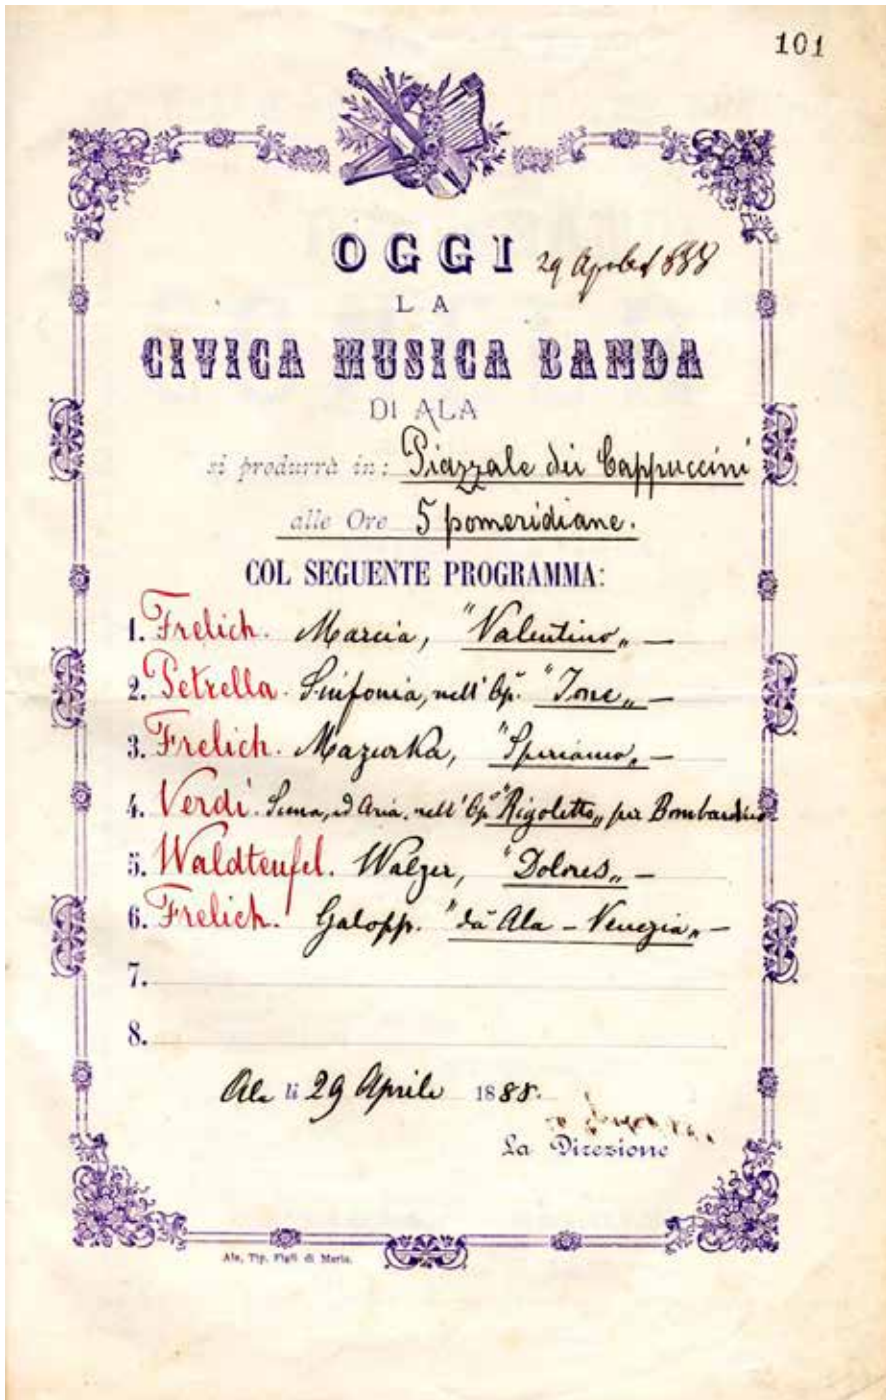 101
OGGI 29 Aprile 1888
LA
CIVICA MUSICA BANDA
DI ALA
si produrrà in: Piazzale dei Cappuccini
alle Ore 5 pomeridiane.
COL SEGUENTE PROGRAMMA:
1. Frelich. Marcia, "Valentino„ —
2. Petrella. Sinfonia, nell' Op.ª "Jone„ —
3. Frelich. Mazurka, "Speriamo„ —
4. Verdi. Scena, ed Aria, nell' Op.ª "Rigoletto„ per Bombardino
5. Waldteufel. Walzer, "Dolores„ —
6. Frelich. Galopp. "da Ala - Venezia„ —
7.
8.
Ala li 29 Aprile 1888.
La Direzione
Ala, Tip. Figli di Maria.